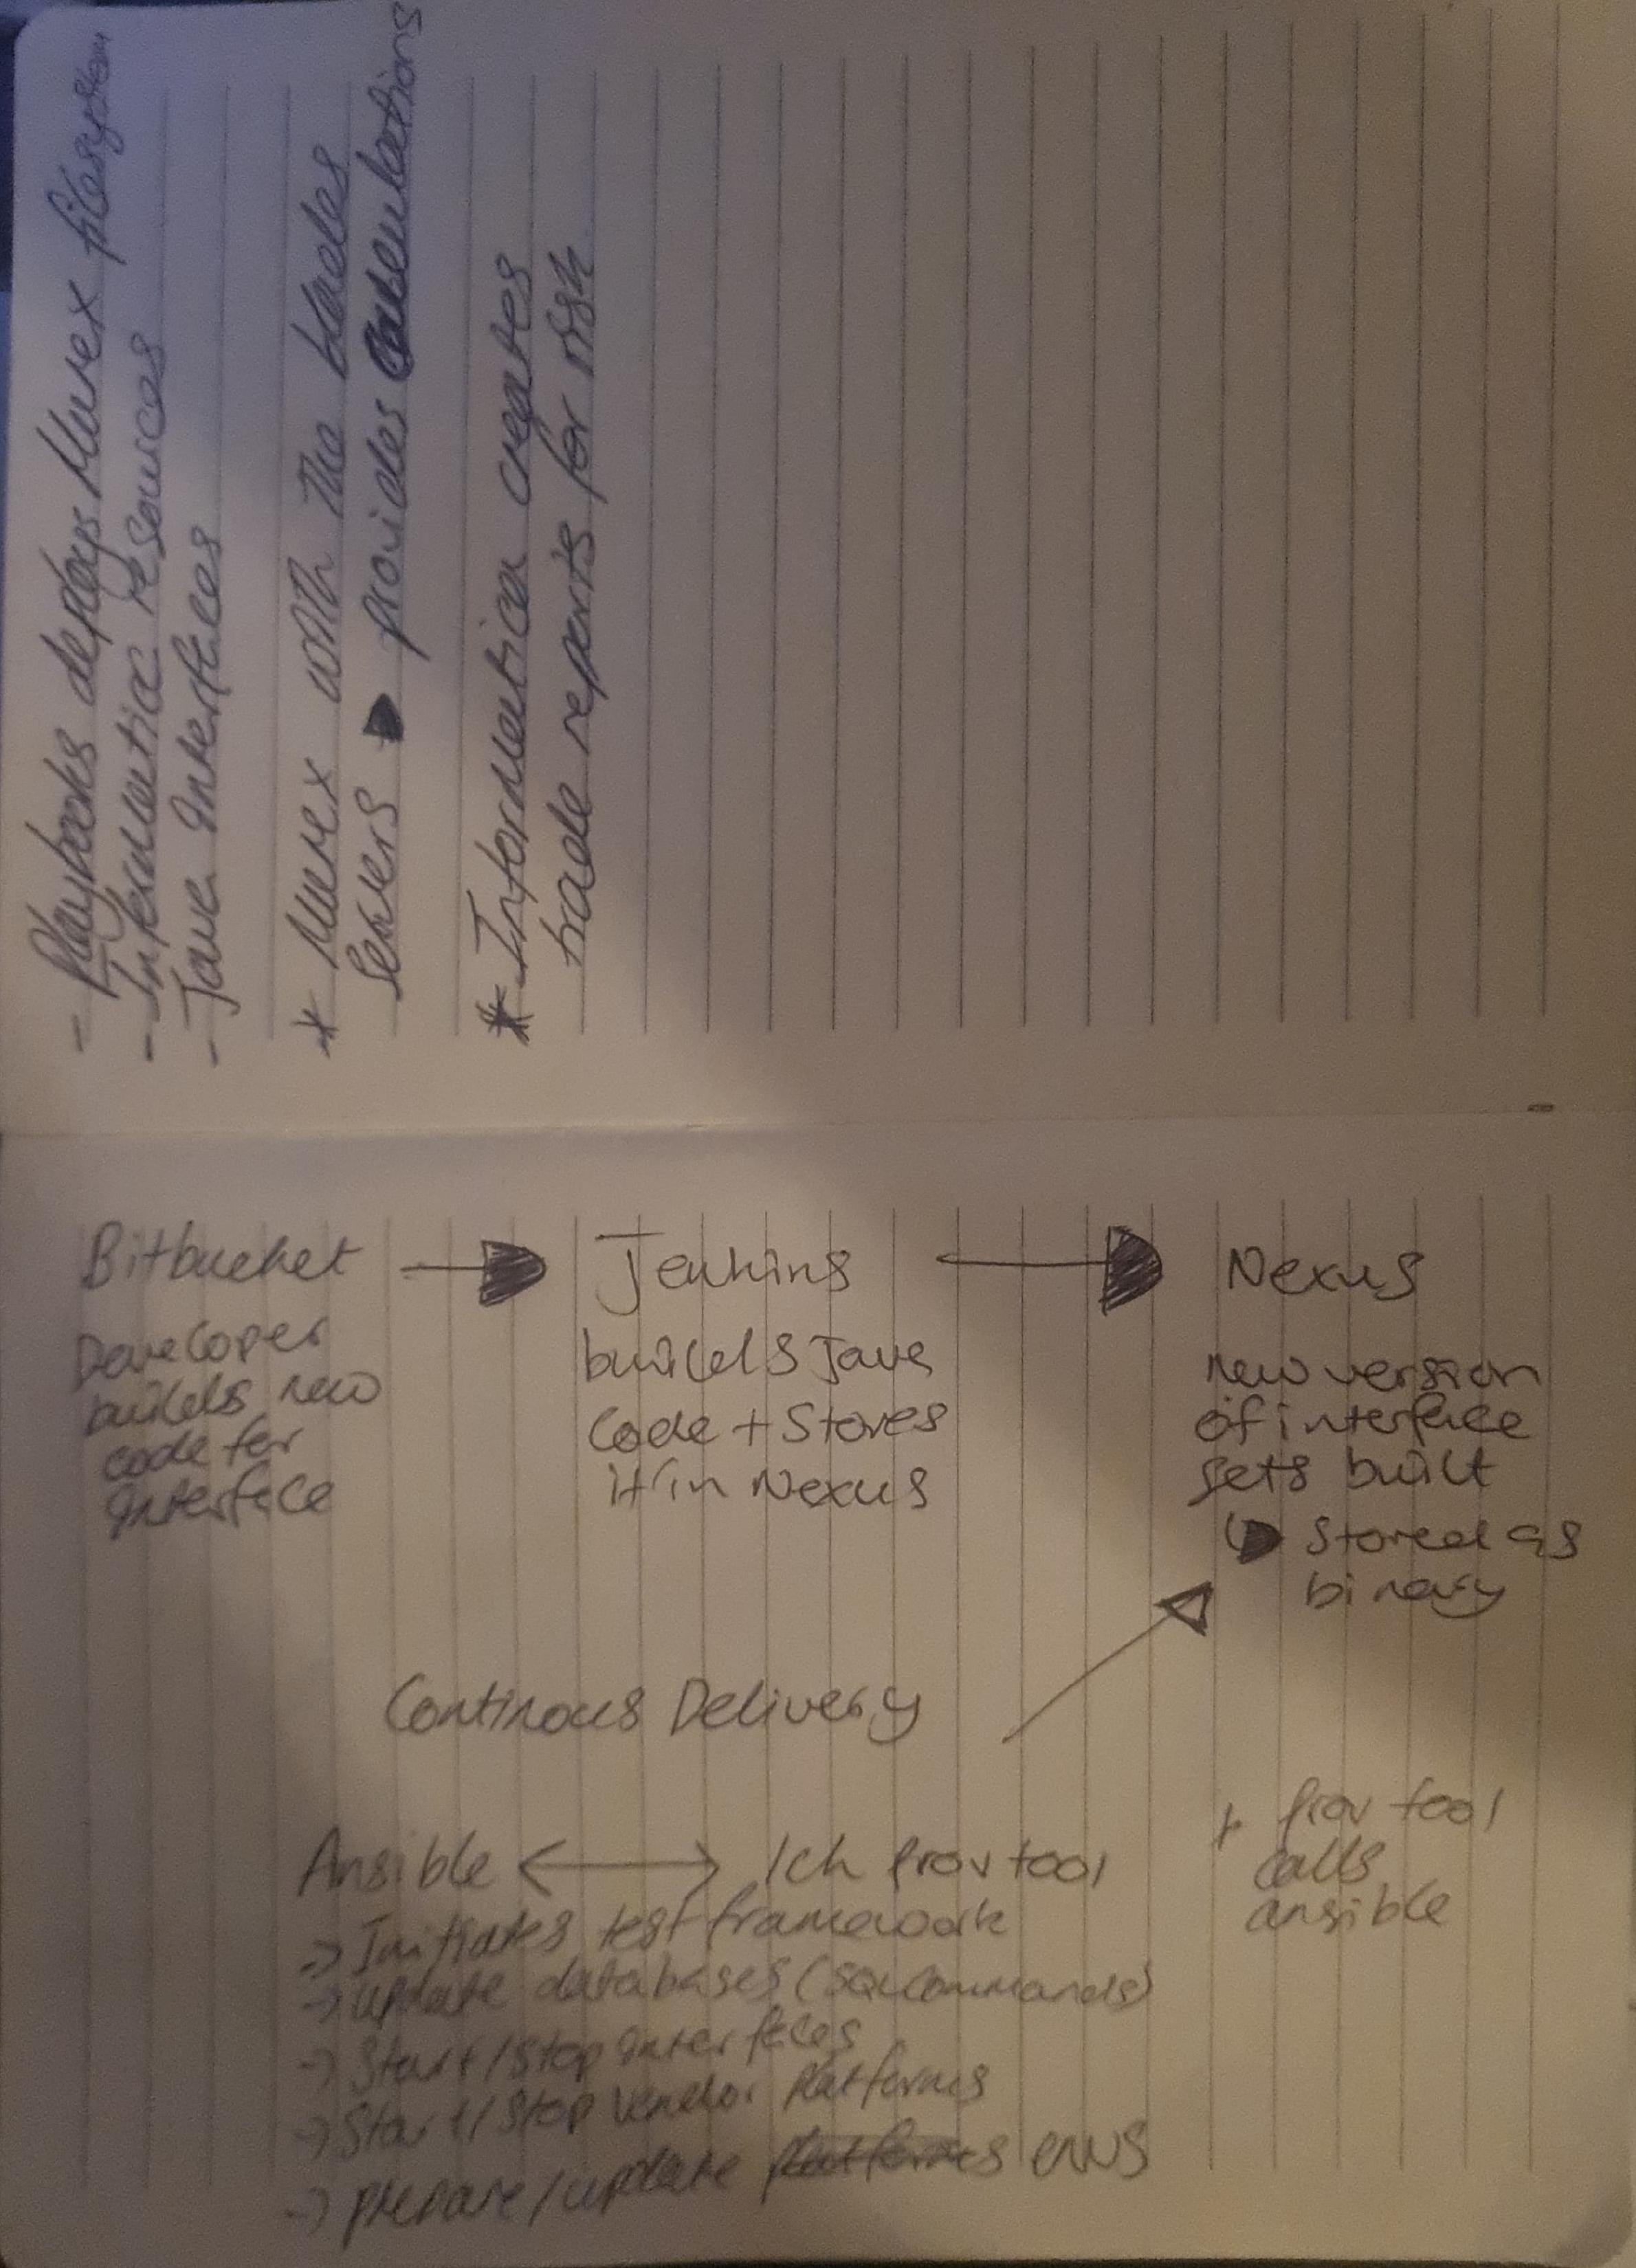 - Playbooks deploys Murex filesystem
- Informatica resources
- Java Interfaces
* Murex with the trades
servers provides calculations
* Informatica creates
trade reports for risk
Bitbucket
Developer
builds new
code for
Interface
Jenkins
builds Java
code + Stores
it in Nexus
Nexus
new version
of interface
gets built
Stored as
binary
Continous Delivery
Ansible
Ich prov tool
-> Initiates test framework
-> update databases (SQL commands)
-> Start/Stop Interfaces
-> Start/Stop Vendor Platforms
-> prepare/update envs
+ prov tool
calls
ansible